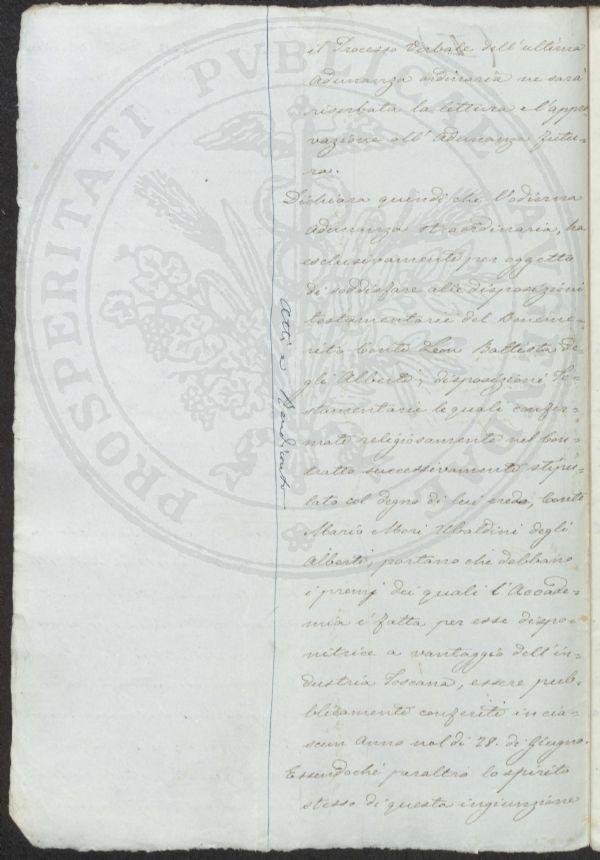 il Processo Verbale dell'ultima
Adunanza ordinaria ne sarà
riserbata la lettura e l'appro-
vazione all'Adunanza futu-
ra.
Dichiara quindi che l'odierna
Adunanza straordinaria, ha
esclusivamente per oggetto
di soddisfare alle disposizioni
testamentarie del Beneme-
rito Conte Leon Battista de-
gli Alberti; disposizioni Te-
stamentarie le quali confer-
mate religiosamente nel Con-
tratto successivamente stipu-
lato col degno di lui erede, Conte
Mario Mori Ubaldini degli
Alberti, portano che debbano
i premj dei quali l'Accade-
mia è fatta per esse dispo-
nitrice a vantaggio dell'in-
dustria Toscana, essere pub-
blicamente conferiti in cia-
scun Anno nel dì 28. di Giugno.
Essendochè peraltro lo spirito
stesso di questa ingiunzione
Atti e Rendiconto
PROSPERITATI PVBLICAE AVGENDAE